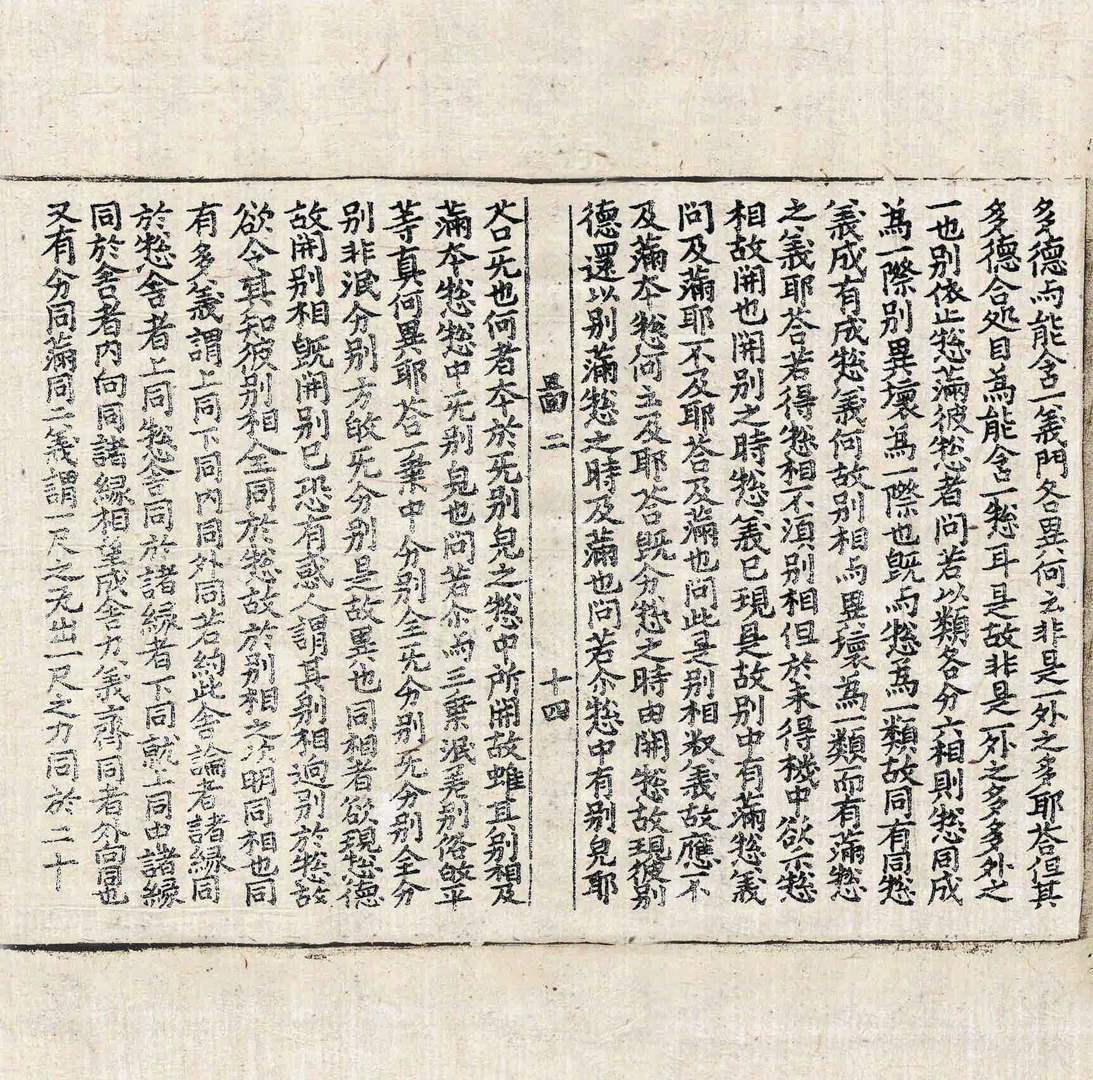 多德与能舍一義門各異何云非是一外之多耶荅但其
多德合処目為能舍一㹅耳是故非是一外之多多外之
一也別依止㹅滿彼㹅者問若以類各分六相則㹅同成
為一際別異壞為一際也旣与㹅為一類故同有同㹅
義成有成㹅義何故別相与異壞為一類而有滿㹅
之義耶荅若得㹅相不湏別相但於未得機中欲示㹅
相故開也開別之時㹅義已現是故別中有滿㹅義
問及滿耶不及耶荅及滿也問此是別相奴義故應不
及滿本㹅何立及耶荅旣分㹅之時由開㹅故現彼別
德還以別滿㹅之時及滿也問若尒㹅中有別皃耶
啚二 十四
荅无也何者本於无別皃之㹅中所開故雖其別相及
滿本㹅㹅中无別皃也問若尒与三乗泯差別俗故平
等真何異耶荅一乗中分別全无分別无分別全分
別非泯分別方故无分別是故異也同相者欲現㹅德
故開別相旣開別已恐有惑人謂其別相逈別於㹅故
欲令其知彼別相全同於㹅故於別相之次明同相也同
有多義謂上同下同內同外同若約此舍論者諸縁同
於㹅舍者上同㹅舍同於諸縁者下同就上同中諸縁
同於舍者內同諸縁相望成舍力義齊同者外同也
又有分同滿同二義謂一尺之无出一尺之力同於二十